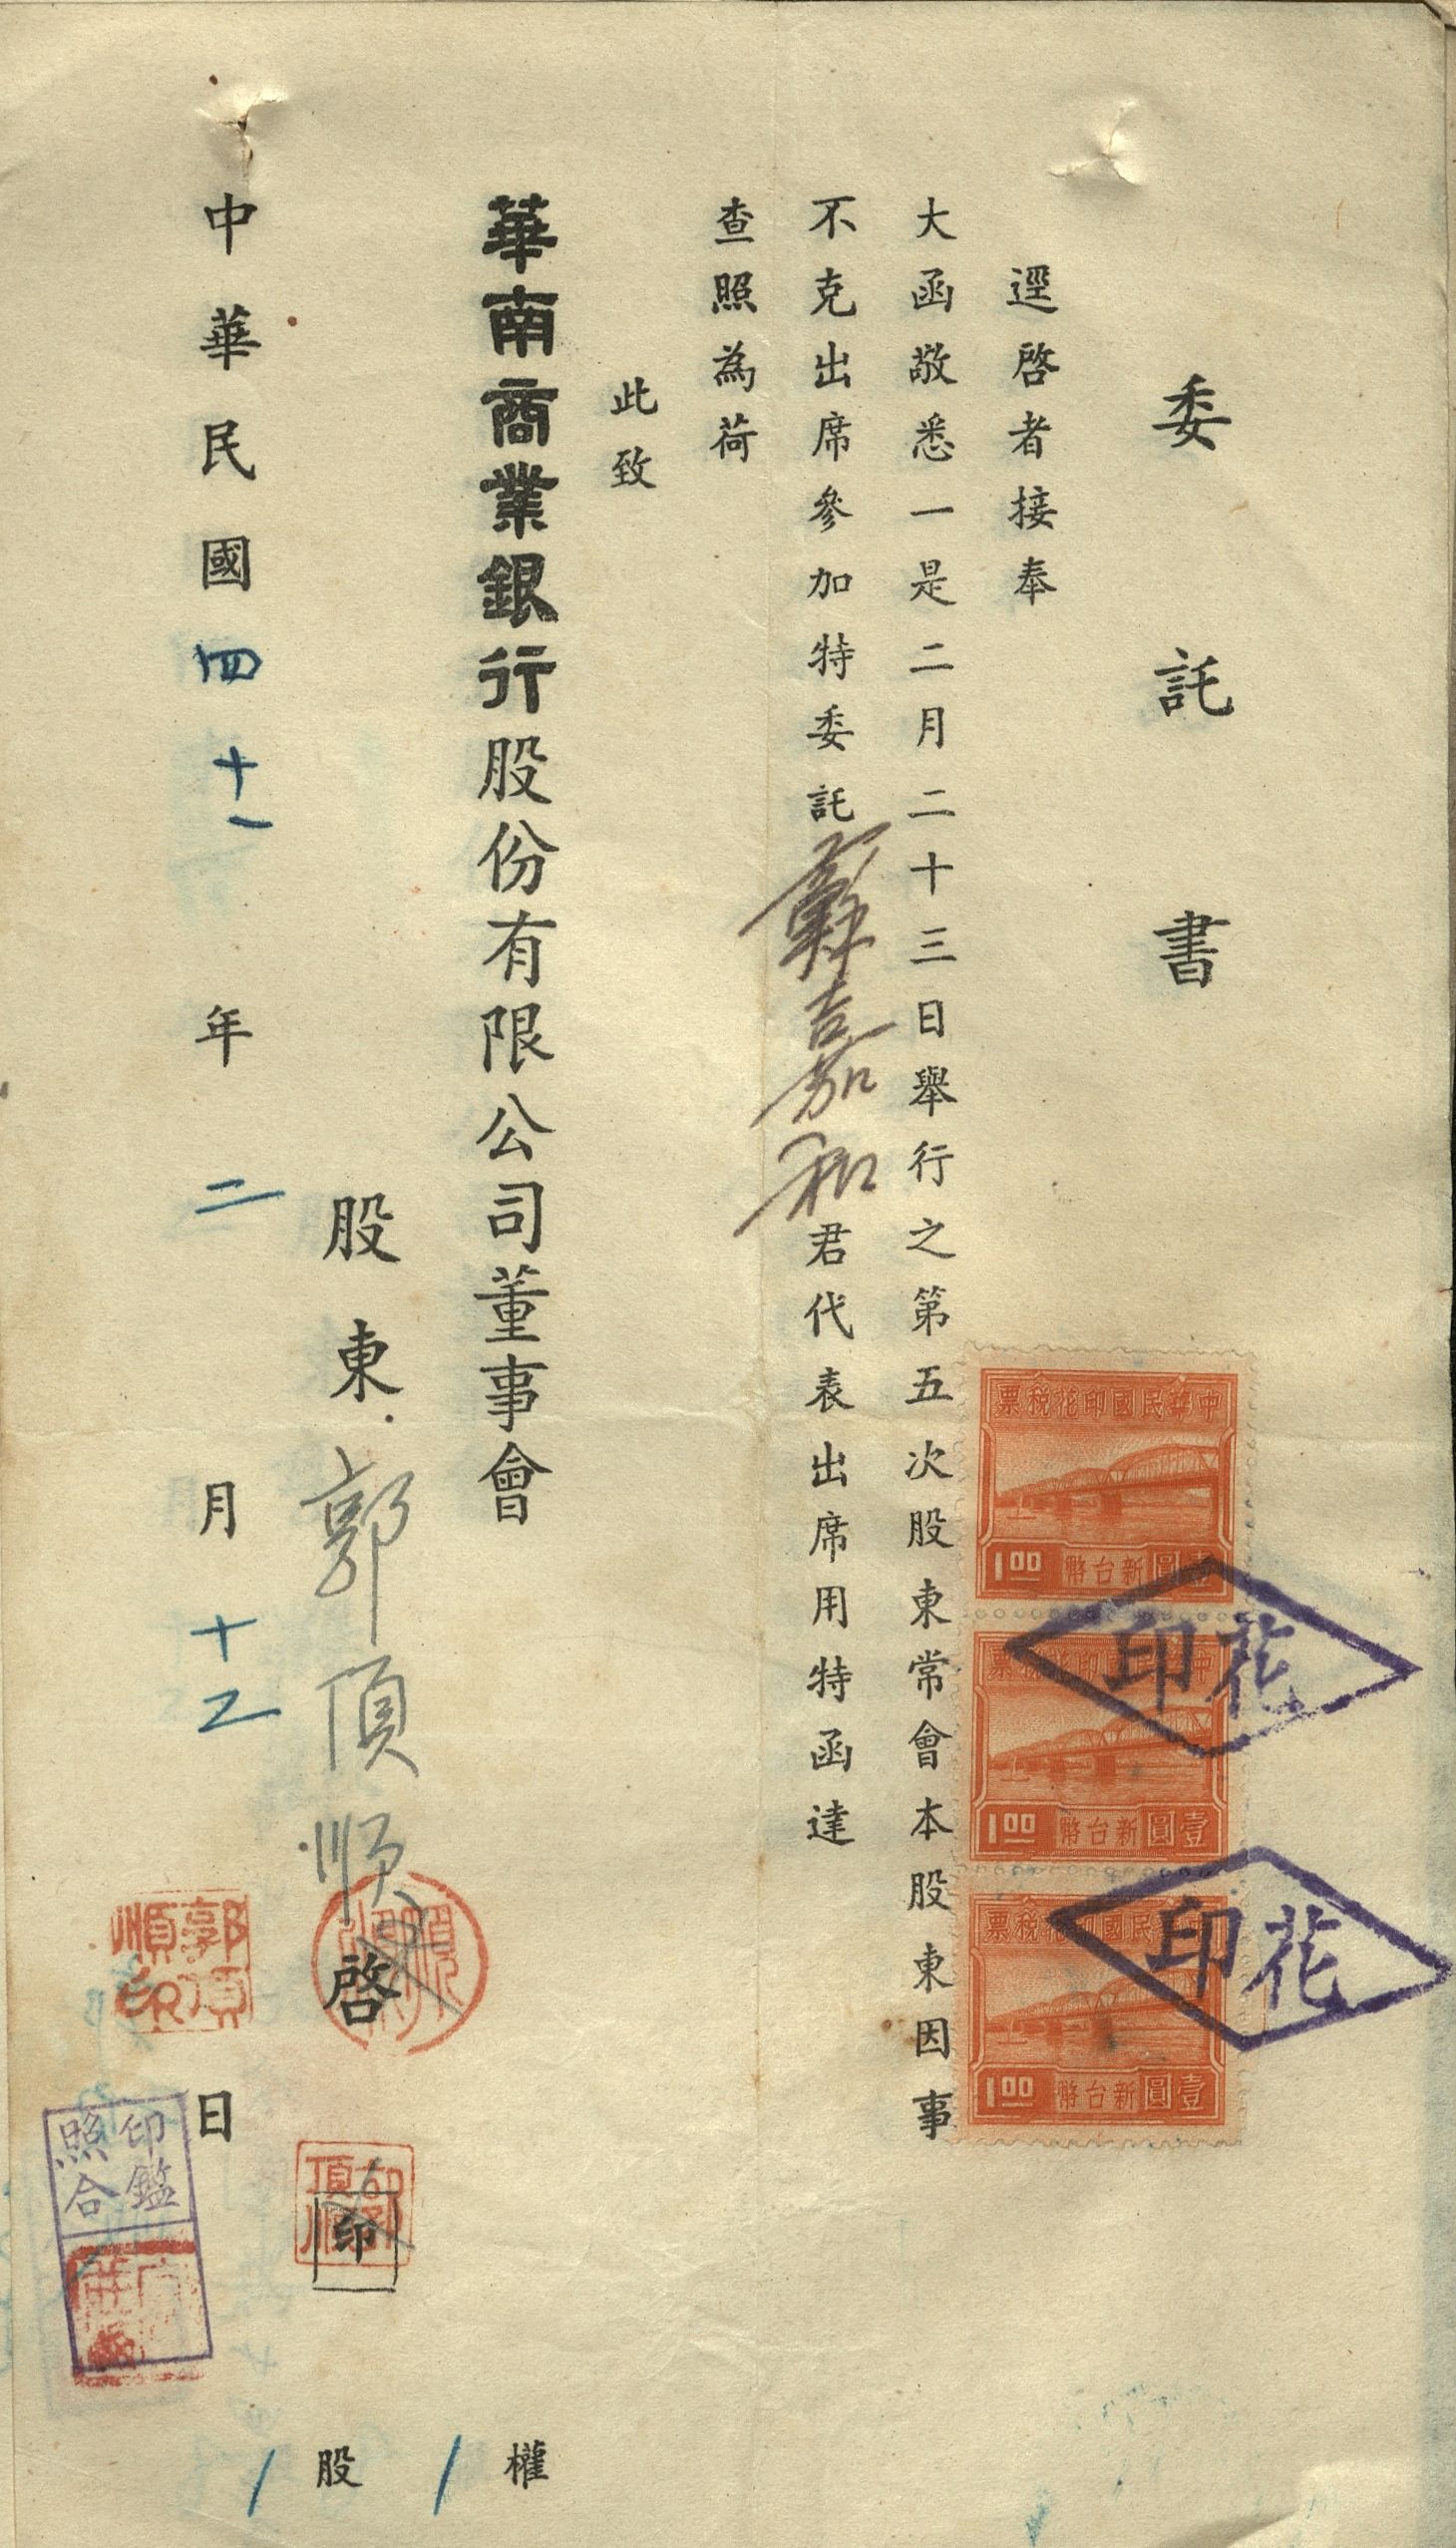 委託書
逕啓者接奉
大函敬悉一是二月二十三日舉行之第五次股東常會本股東因事
不克出席參加特委託蘇嘉和君代表出席用特函達
查照為荷
此致
華南商業銀行股份有限公司董事會
股東郭頂順啓
印
中華民國四十一年二月十二日
權1
股1
中華民國印花稅票
1.00 新台幣壹圓
中華民國印花稅票
1.00 新台幣壹圓
中華民國印花稅票
1.00 新台幣壹圓
印花
印花
郭頂順印
印鑑照合